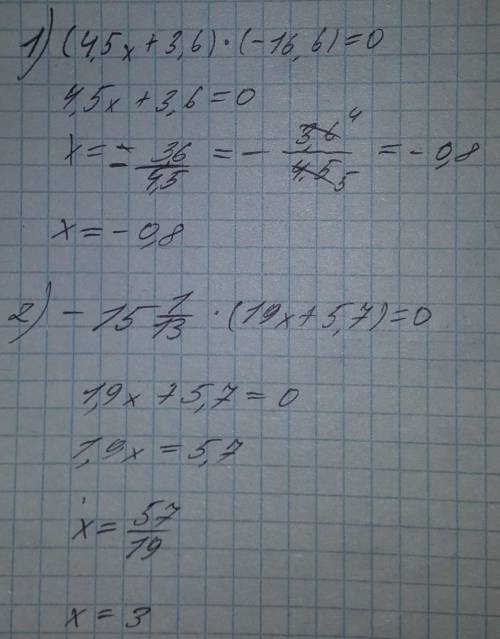 1) (4,5x+3,6)·(-16,6)=0
4,5x+3,6=0
x=-3,6/4,5=-3,6 4/4,5 5=-0,8
x=-0,8
2) -15 1/13·(19x+5,7)=0
1,9x+5,7=0
1,9x=5,7
x=57/19
x=3